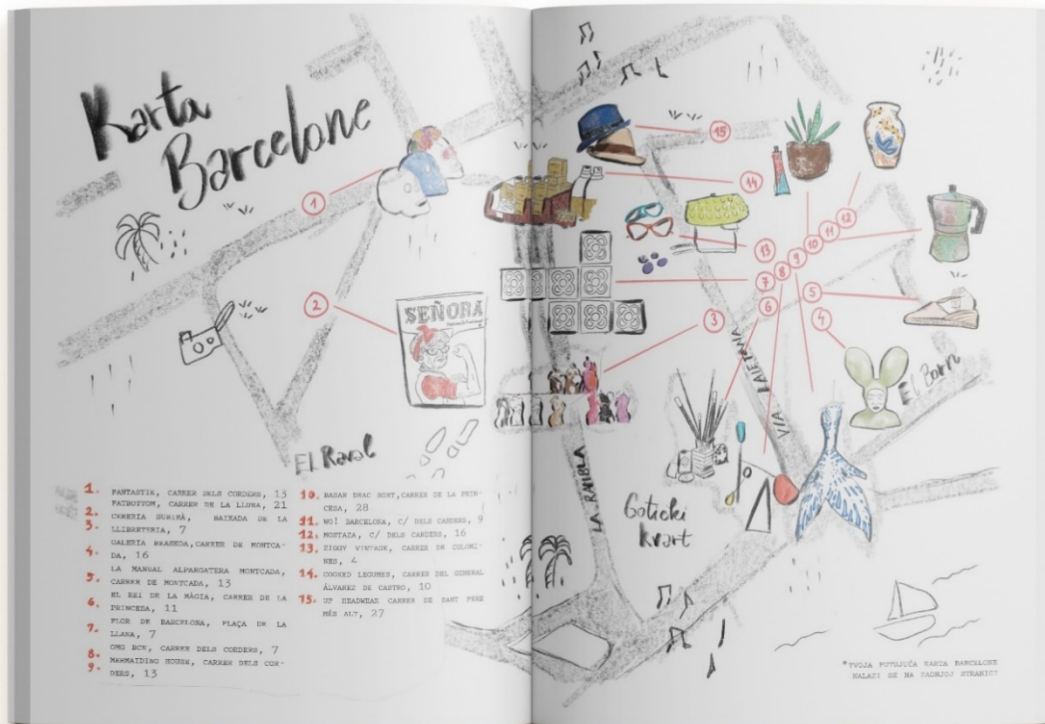 Karta
Barcelone
SEÑORA
El Raval
LA RAMBLA
VIA LAIETANA
El Born
Gotički
kvart
1
2
3
4
5
6
7
8
9
10
11
12
13
14
15
1. FANTASTIK, CARRER DELS CORDERS, 13
2. FATBOTTOM, CARRER DE LA LLUNA, 21
3. CERERIA SUBIRÀ, BAIXADA DE LA
LLIBRETERIA, 7
4. GALERIA CARRER DE MONTCA-
DA, 16
5. LA MANUAL ALPARGATERA MONTCADA,
CARRER DE MONTCADA, 13
6. EL REI DE LA MÀGIA, CARRER DE LA
PRINCESA, 11
7. FLOR DE BARCELONA, PLAÇA DE LA
LLANA, 7
8. OMG BCN, CARRER DELS CORDERS, 7
9. MERMAIDING HOUSE, CARRER DELS COR-
DERS, 13
10. BASAR DRAC SORT, CARRER DE LA PRIN-
CESA, 28
11. WO! BARCELONA, C/ DELS CARDERS, 9
12. MOSTAZA, C/ DELS CARDERS, 16
13. ZIGGY VINTAGE, CARRER DE COLOMI-
NES, 4
14. COOKED LEGUMES, CARRER DEL GENERAL
ÁLVAREZ DE CASTRO, 10
15. UP HEADWEAR CARRER DE SANT PERE
MÉS ALT, 27
*TVOJA PUTUJUĆA KARTA BARCELONE
NALAZI SE NA ZADNJOJ STRANICI